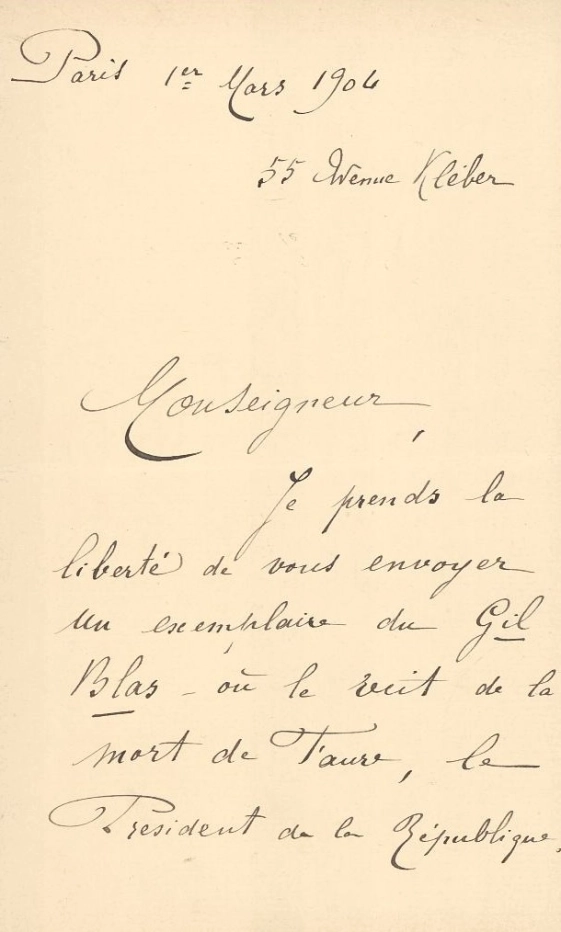 Paris 1er Mars 1904
55 Avenue Kléber
Monseigneur,
Je prends la
liberté de vous envoyer
un exemplaire du Gil
Blas - où le récit de la
mort de Faure, le
Président de la République,